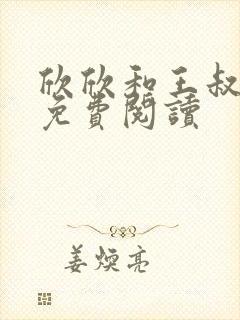 欣欣和王叔
免費閱讀
姜煥亮